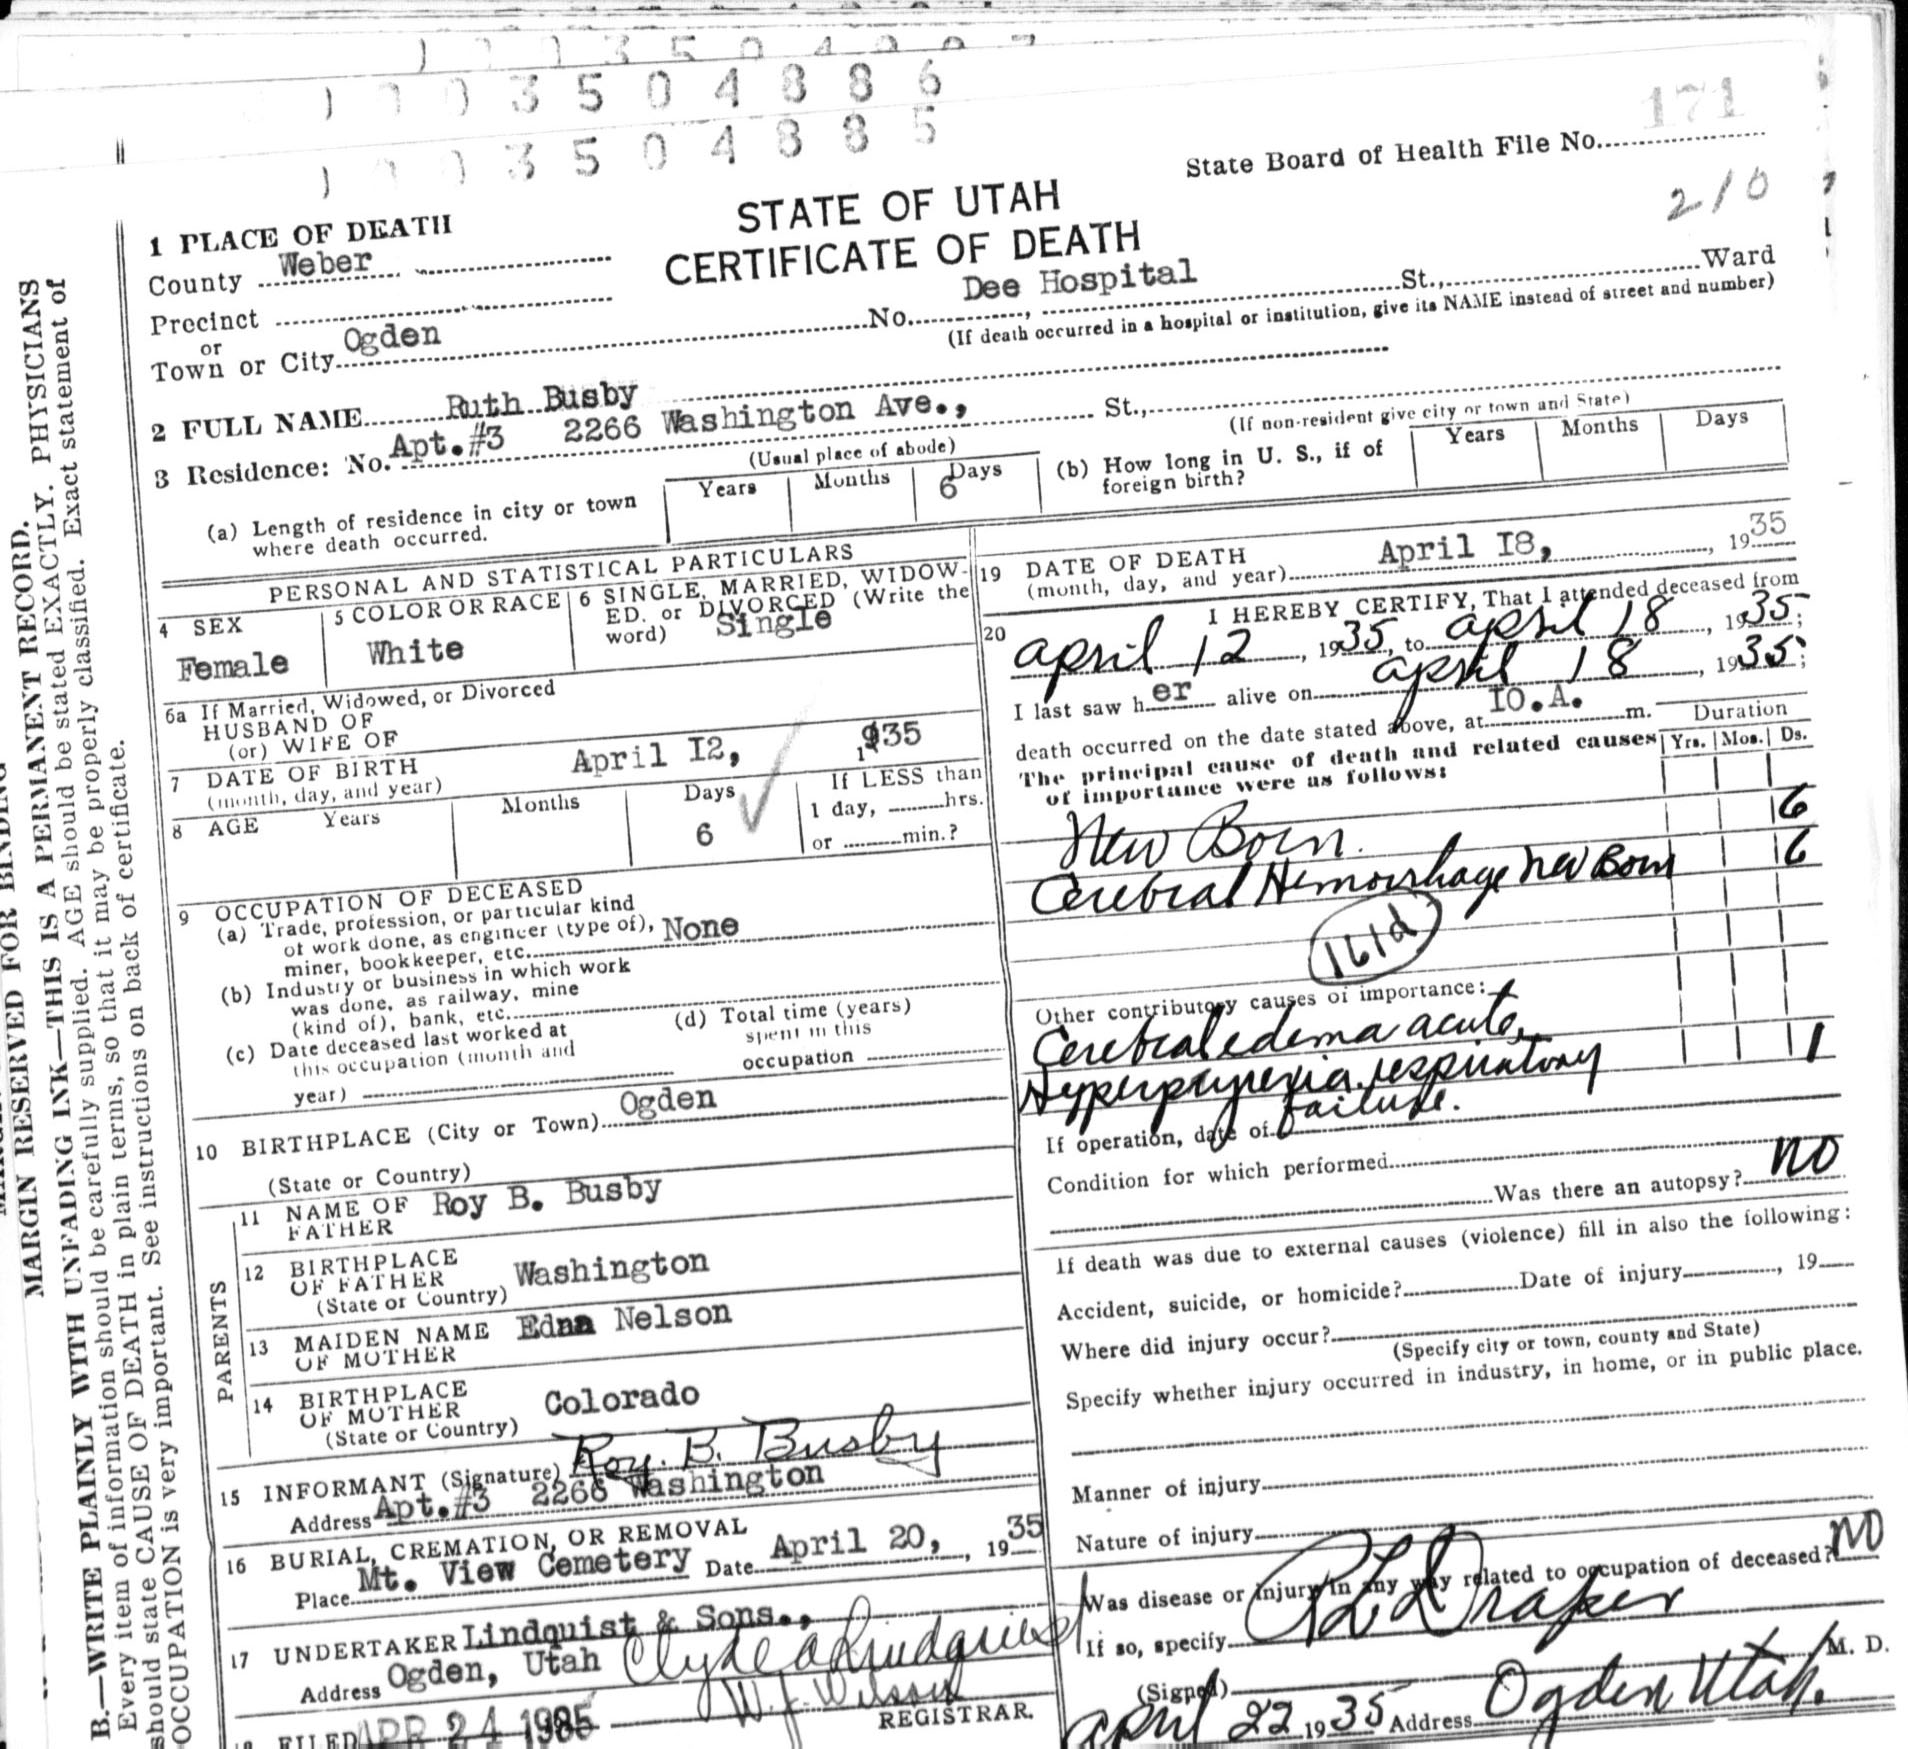 3 5 0 4 8 8 6
3 5 0 4 8 8 5
171
State Board of Health File No.
210
STATE OF UTAH
CERTIFICATE OF DEATH
1 PLACE OF DEATH
County Weber
Precinct
or
Town or City Ogden No. Dee Hospital St., Ward
(If death occurred in a hospital or institution, give its NAME instead of street and number)
2 FULL NAME Ruth Busby
3 Residence: No. Apt.#3 2266 Washington Ave., St.,
(Usual place of abode) (If non-resident give city or town and State)
(a) Length of residence in city or town where death occurred. Years Months Days 6
(b) How long in U. S., if of foreign birth? Years Months Days
PERSONAL AND STATISTICAL PARTICULARS
4 SEX Female
5 COLOR OR RACE White
6 SINGLE, MARRIED, WIDOWED, or DIVORCED (Write the word) Single
6a If Married, Widowed, or Divorced
HUSBAND OF
(or) WIFE OF
7 DATE OF BIRTH April I2, 1935
(month, day, and year)
8 AGE Years Months Days 6 If LESS than
1 day, hrs.
or min.?
9 OCCUPATION OF DECEASED
(a) Trade, profession, or particular kind
of work done, as engineer (type of), None
miner, bookkeeper, etc.
(b) Industry or business in which work
was done, as railway, mine
(kind of), bank, etc.
(c) Date deceased last worked at
this occupation (month and
year)
(d) Total time (years)
spent in this
occupation
10 BIRTHPLACE (City or Town) Ogden
(State or Country)
PARENTS
11 NAME OF FATHER Roy B. Busby
12 BIRTHPLACE OF FATHER Washington
(State or Country)
13 MAIDEN NAME OF MOTHER Edna Nelson
14 BIRTHPLACE OF MOTHER Colorado
(State or Country)
15 INFORMANT (Signature) Roy. B. Busby
Address Apt.#3 2266 Washington
16 BURIAL, CREMATION, OR REMOVAL
Place Mt. View Cemetery Date April 20, 1935
17 UNDERTAKER Lindquist & Sons.,
Address Ogden, Utah Clyde A Lindquist
W. J. Wilson
18 FILED APR 24 1935 REGISTRAR.
19 DATE OF DEATH April I8, 1935
(month, day, and year)
20 I HEREBY CERTIFY, That I attended deceased from
april 12, 1935, to april 18, 1935;
I last saw her alive on april 18, 1935;
death occurred on the date stated above, at IO.A. m.
The principal cause of death and related causes
of importance were as follows:
Duration
Yrs. Mos. Ds.
New Born. 6
Cerebral Hemorrhage New Born 6
161d
Other contributory causes of importance:
Cerebral edema acute,
Hyperpyrexia. respiratory 1
failure.
If operation, date of
Condition for which performed
Was there an autopsy? no
If death was due to external causes (violence) fill in also the following:
Accident, suicide, or homicide? Date of injury , 19
Where did injury occur?
(Specify city or town, county and State)
Specify whether injury occurred in industry, in home, or in public place.
Manner of injury
Nature of injury
Was disease or injury in any way related to occupation of deceased? no
If so, specify
(Signed) R L Draper M. D.
April 22 1935 Address Ogden Utah.
MARGIN RESERVED FOR BINDING
B.—WRITE PLAINLY WITH UNFADING INK—THIS IS A PERMANENT RECORD.
Every item of information should be carefully supplied. AGE should be stated EXACTLY. PHYSICIANS
should state CAUSE OF DEATH in plain terms, so that it may be properly classified. Exact statement of
OCCUPATION is very important. See instructions on back of certificate.